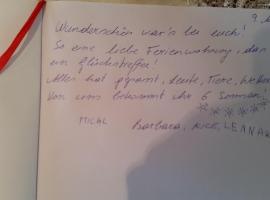 9.
Wunderschön war's bei euch!
So eine liebe Ferienwohnung, das
ein Glückstreffer!
Alles hat gepasst, Leute, Tiere, Wetter
Von uns bekommt ihr 6 Sonnen!
MICHL Barbara, ALICE, LENNAR